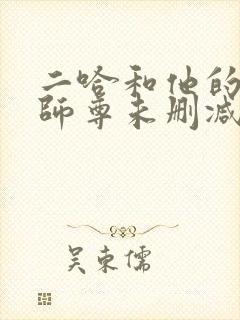 二哈和他的
师尊未删减
吴东儒